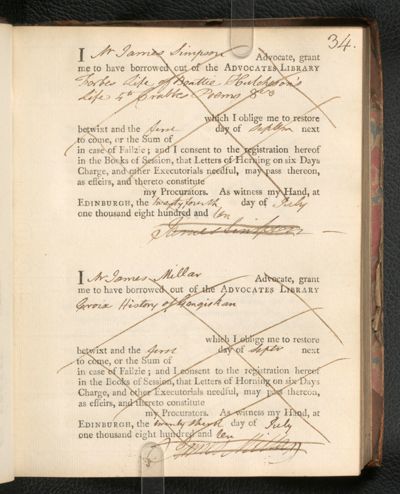 34.
I Mr James Simpson Advocate, grant
me to have borrowed out of the ADVOCATES LIBRARY
Forbes Life of Beattie Hutchinson's
Life 4to Crabbe's Poems 8vo
which I oblige me to restore
betwixt and the first day of Septem next
to come, or the Sum of
in case of Failzie; and I consent to the registration hereof
in the Books of Session, that Letters of Horning on six Days
Charge, and other Executorials needful, may pass thereon,
as effeirs, and thereto constitute
my Procurators. As witness my Hand, at
EDINBURGH, the twenty fourth day of July
one thousand eight hundred and ten
James Simpson
I Mr James Millar Advocate, grant
me to have borrowed out of the ADVOCATES LIBRARY
Croix History of Gengiskan
which I oblige me to restore
betwixt and the first day of Septr next
to come, or the Sum of
in case of Failzie; and I consent to the registration hereof
in the Books of Session, that Letters of Horning on six Days
Charge, and other Executorials needful, may pass thereon,
as effeirs, and thereto constitute
my Procurators. As witness my Hand, at
EDINBURGH, the twenty day of July
one thousand eight hundred and ten
James Millar